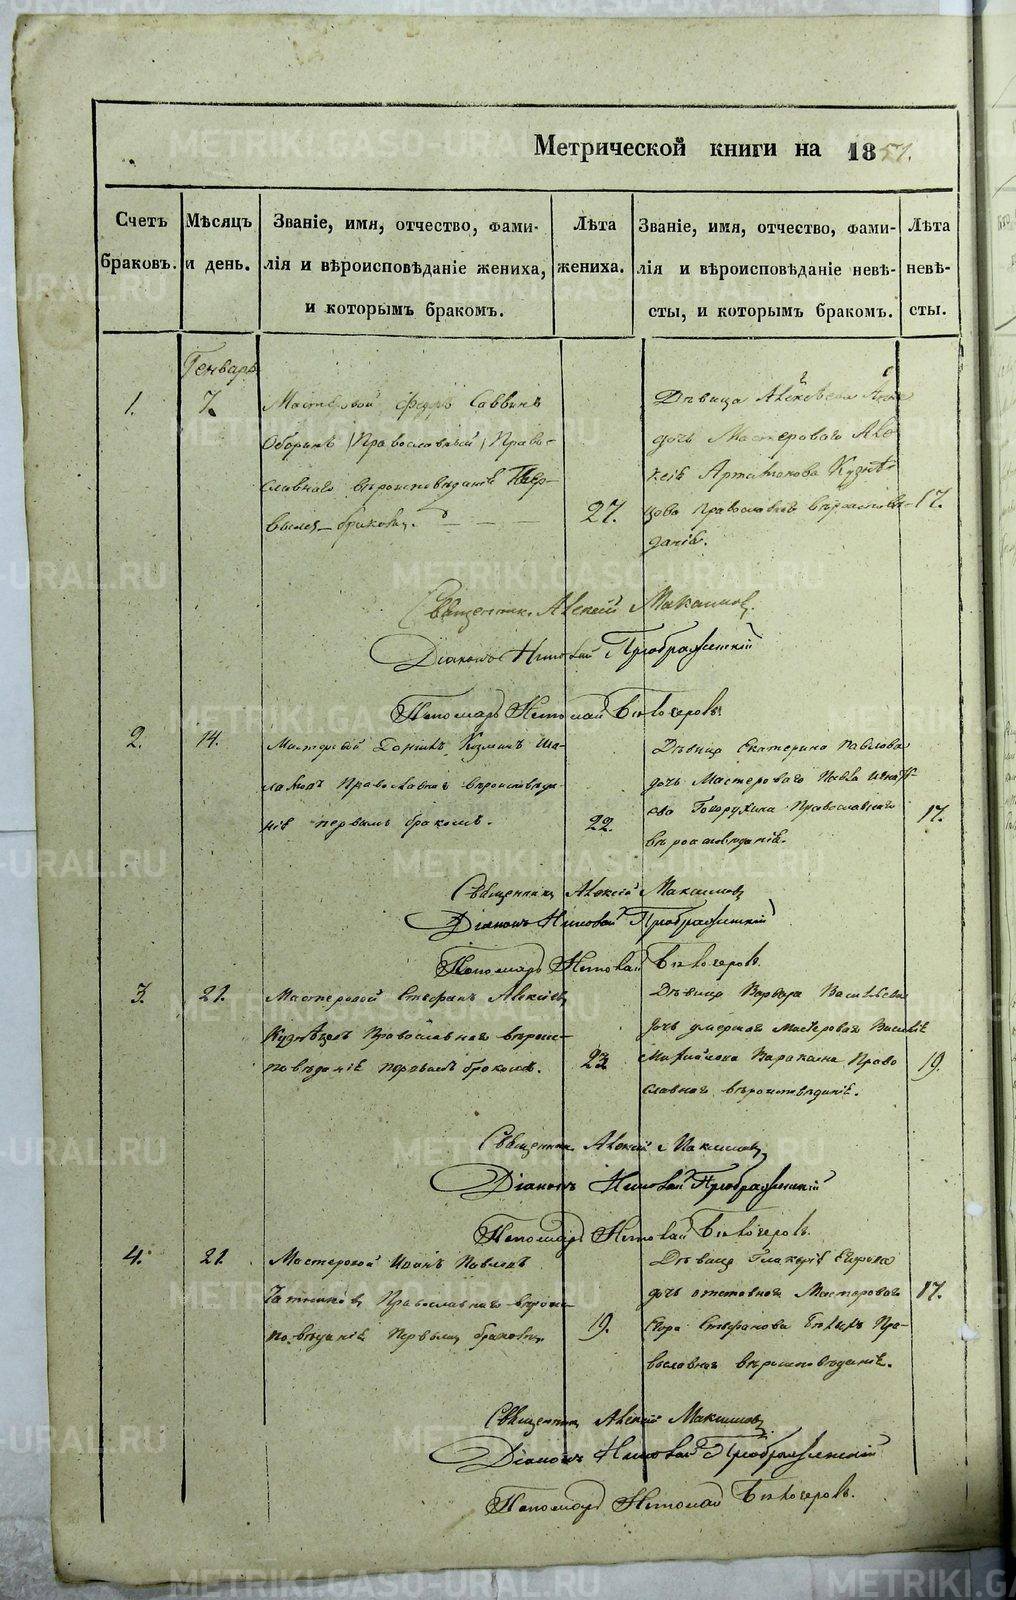 Метрической книги на 1851.
Счетъ браковъ.
Мѣсяцъ и день.
Званіе, имя, отчество, фами-
лія и вѣроисповѣданіе жениха,
и которымъ бракомъ.
Лѣта жениха.
Званіе, имя, отчество, фами-
лія и вѣроисповѣданіе невѣ-
сты, и которымъ бракомъ.
Лѣта невѣ-
сты.
Генварь
1.
7.
Мастеровой Федоръ Саввинъ
Оборинъ Православный Право-
славнаго вѣроисповѣданія Пер-
вымъ бракомъ.
27.
Дѣвица
дочь Мастероваго Але
ксѣя Артамонова Кузнѣ
цова православнаго вѣроисповѣ-
данія.
17.
Священникъ Алексій Максимовъ
Діаконъ Николай Преображенскій
Пономарь Николай Бѣлозеровъ
2.
14.
Мастеровой Козминъ
Православнаго вѣроисповѣда-
нія первымъ бракомъ.
22.
Дѣвица Екатерина Павлова
дочь Мастероваго Павла
Православнаго
вѣроисповѣданія.
17.
Священникъ Алексій Максимовъ
Діаконъ Николай Преображенскій
Пономарь Николай Бѣлозеровъ.
3.
21.
Мастеровой Стефанъ Алексѣевъ
Кузнѣцовъ Православнаго вѣроис-
повѣданія первымъ бракомъ.
23
Дѣвица Варвара Васильева
дочь умершаго Мастероваго Василія
Михайлова Право
славнаго вѣроисповѣданія.
19.
Священникъ Алексій Максимовъ
Діаконъ Николай Преображенскій
Пономарь Николай Бѣлозеровъ.
4.
21.
Мастеровой Иванъ Павловъ
Православнаго вѣроис-
повѣданія Первымъ бракомъ
19.
Дѣвица Гликерія Егорова
дочь отставнаго Мастероваго
Егора Стефанова Пра-
вославнаго вѣроисповѣданія.
17.
Священникъ Алексій Максимовъ
Діаконъ Николай Преображенскій
Пономарь Николай Бѣлозеровъ.
METRIKI.GASO-URAL.RU